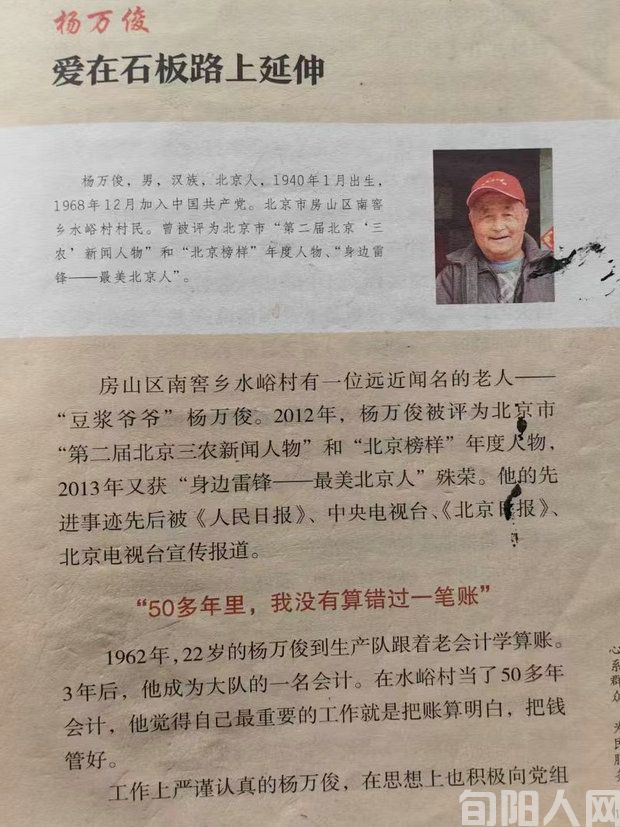 杨万俊
爱在石板路上延伸
杨万俊，男，汉族，北京人，1940年1月出生，
1968年12月加入中国共产党。北京市房山区南窖
乡水峪村村民。曾被评为北京市“第二届北京‘三
农’新闻人物”和“北京榜样”年度人物、“身边雷
锋——最美北京人”。
房山区南窖乡水峪村有一位远近闻名的老人——
“豆浆爷爷”杨万俊。2012年，杨万俊被评为北京市
“第二届北京三农新闻人物”和“北京榜样”年度人物，
2013年又获“身边雷锋——最美北京人”殊荣。他的先
进事迹先后被《人民日报》、中央电视台、《北京日报》、
北京电视台宣传报道。
“50多年里，我没有算错过一笔账”
1962年，22岁的杨万俊到生产队跟着老会计学算账。
3年后，他成为大队的一名会计。在水峪村当了50多年
会计，他觉得自己最重要的工作就是把账算明白，把钱
管好。
工作上严谨认真的杨万俊，在思想上也积极向党组
心系群众
旬阳人网